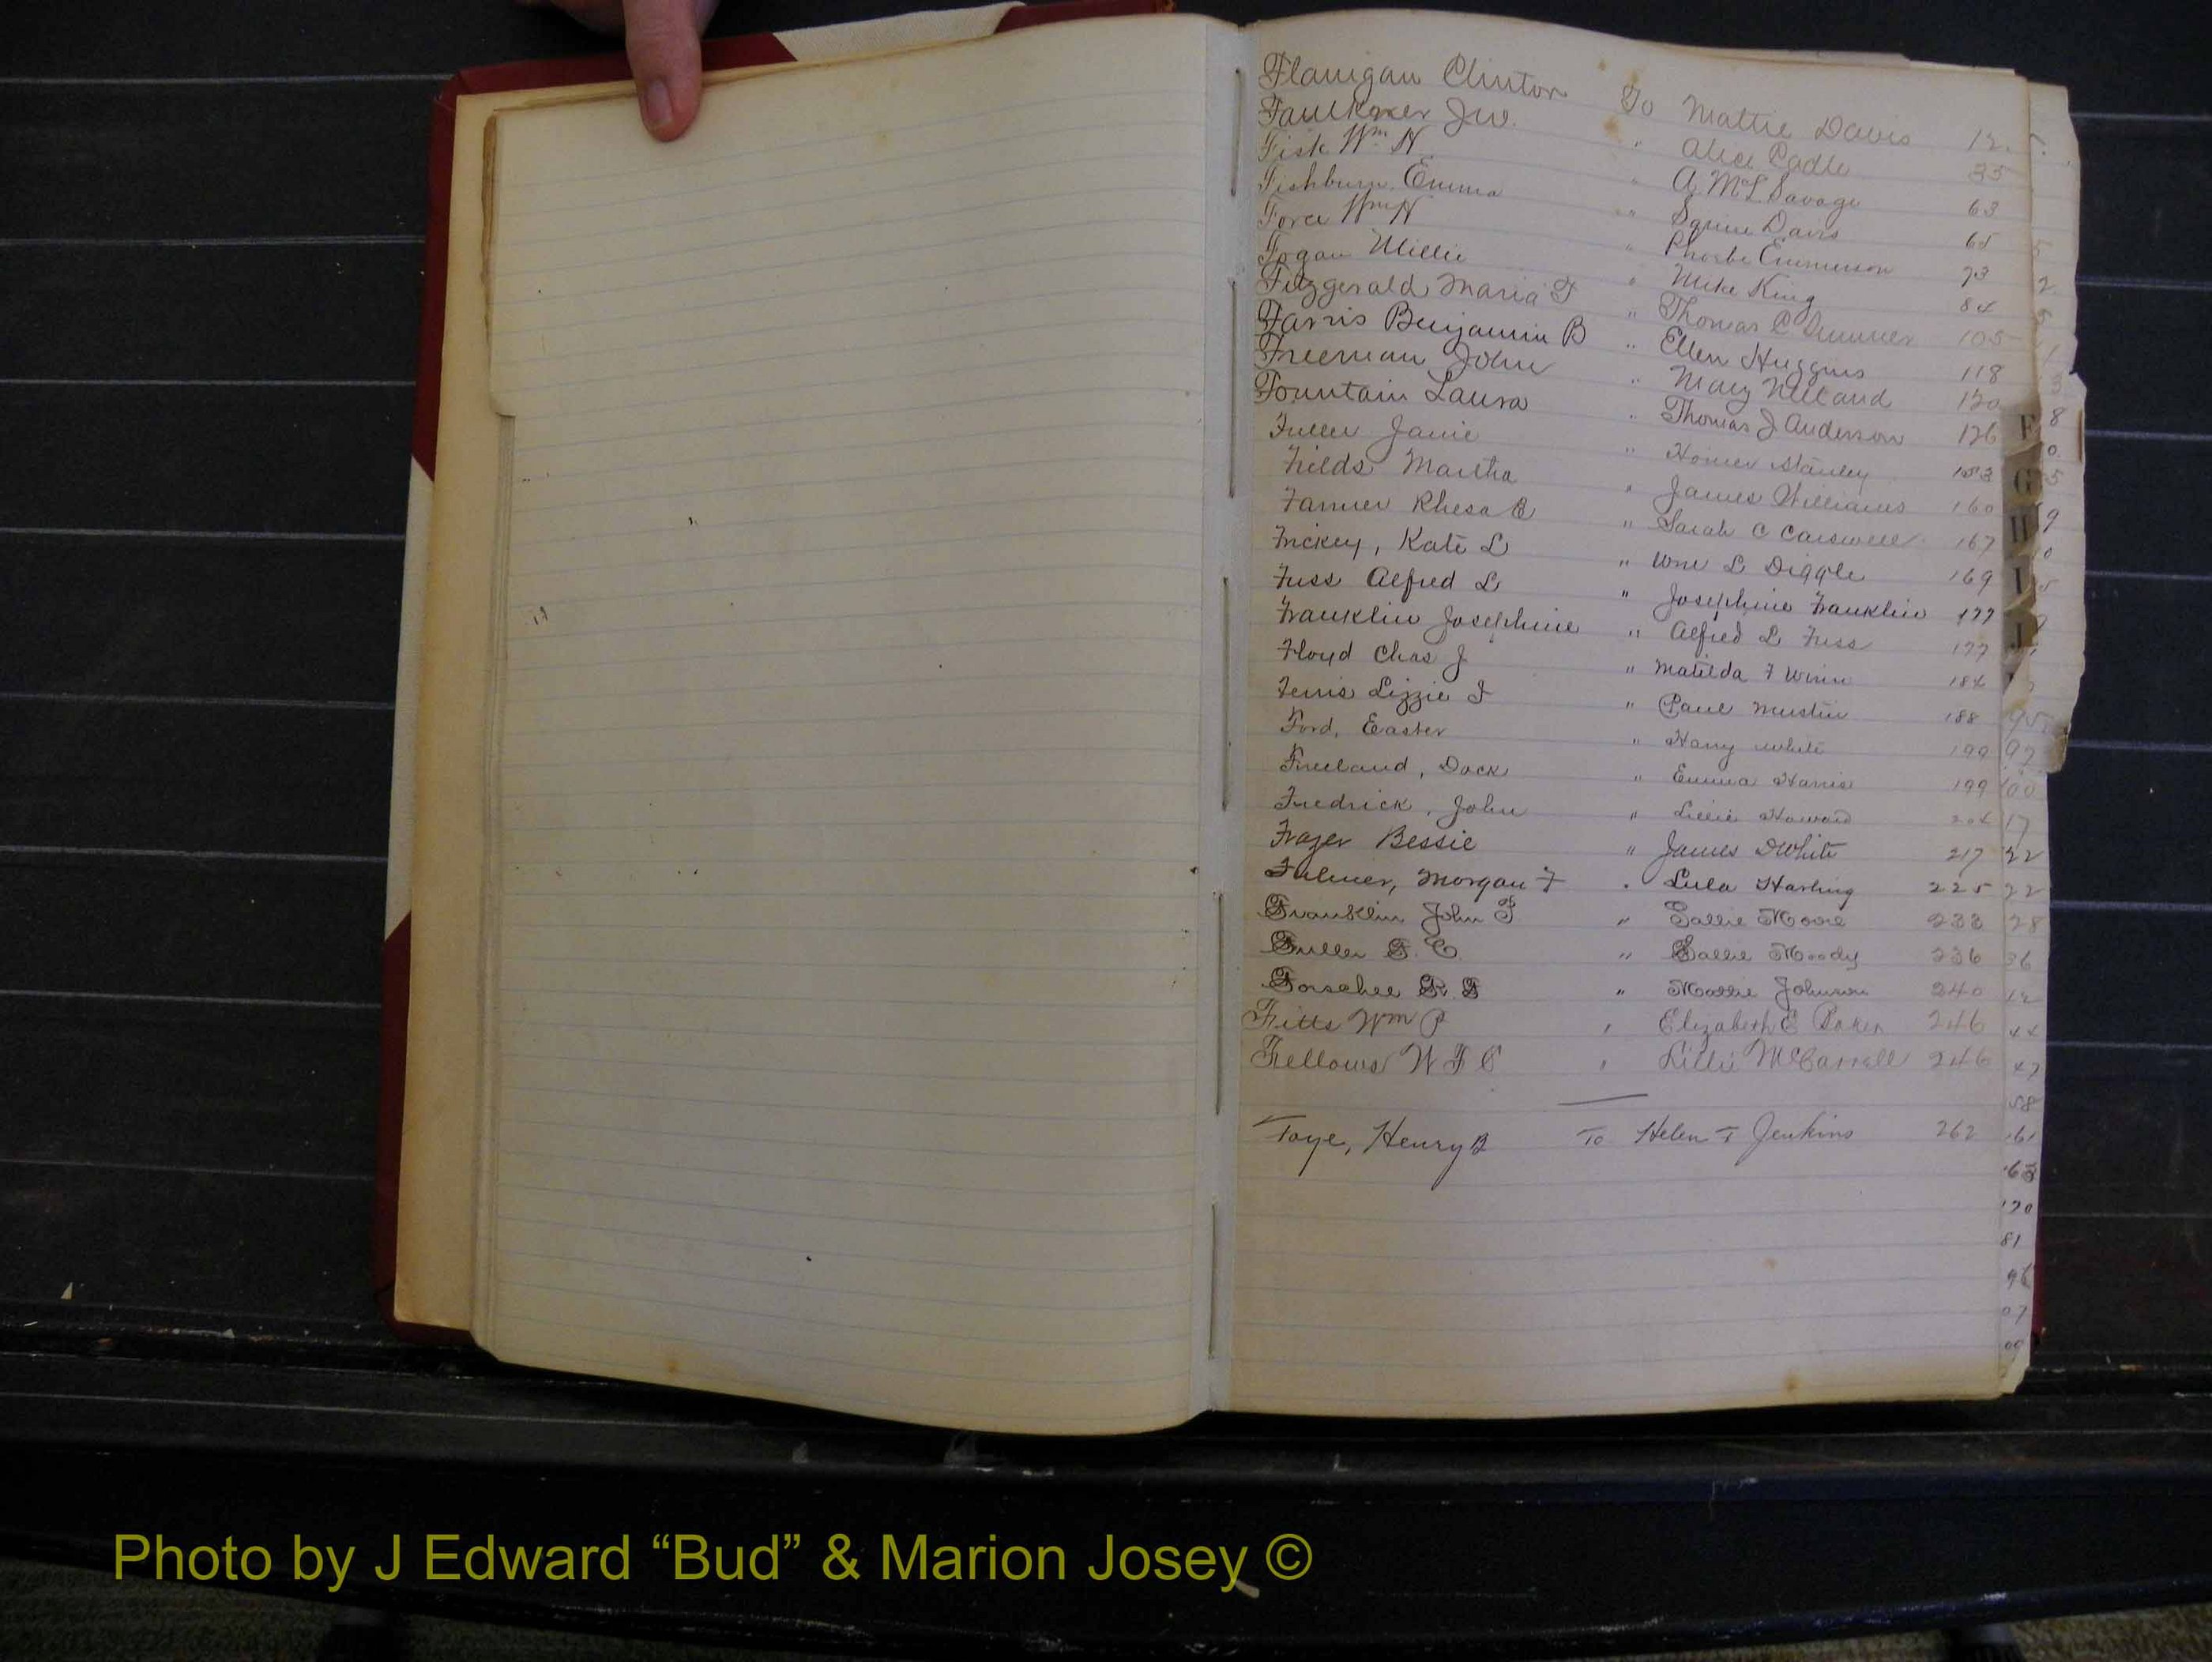 Flanigan Clinton To Mattie Davis 12
Faulkner J W. " Alice Cadle 35
Fisk Wm H " A. McL Savage 63
Fishburn Emma " Squire Davis 65
Force Wm H " Phoebe Emmerson 73
Fogan Millie " Mike King 84
Fitzgerald Maria F " Thomas C 105
Farris Benjamin B " Ellen Huggins 118
Freeman John " Mary 120
Fountain Laura " Thomas J Anderson 126
Fuller Janie " Homer Stanley 153
Fields Martha " James Williams 160
Farmer Rhesa E " Sarah C Carswell 167
Frickey, Kate L " Wm L Diggle 169
Fuss Alfred L " Josephine Franklin 177
Franklin Josephine " Alfred L Fuss 177
Floyd Chas J " Matilda F Winn 184
Ferris Lizzie J " Paul Mustin 188
Ford, Easter " Harry White 199
Freeland, Dock " Emma Harris 199
Fredrick, John " Lillie Howard 204
Frazer Bessie " James D White 217
Fulmer, Morgan F " Lula Harling 225
Franklin John F " Sallie Moore 233
Fuller F. C. " Sallie Moody 236
Forsehee R. F " Mattie Johnson 240
Fitts Wm P " Elizabeth E Baker 246
Fellows W F C " Lillie McCarrell 246
Faye, Henry B To Helen T Jenkins 262
F
G
H
I
J
95
97
100
17
22
22
28
36
12
44
47
58
61
63
170
81
96
07
09
Photo by J Edward “Bud” & Marion Josey ©